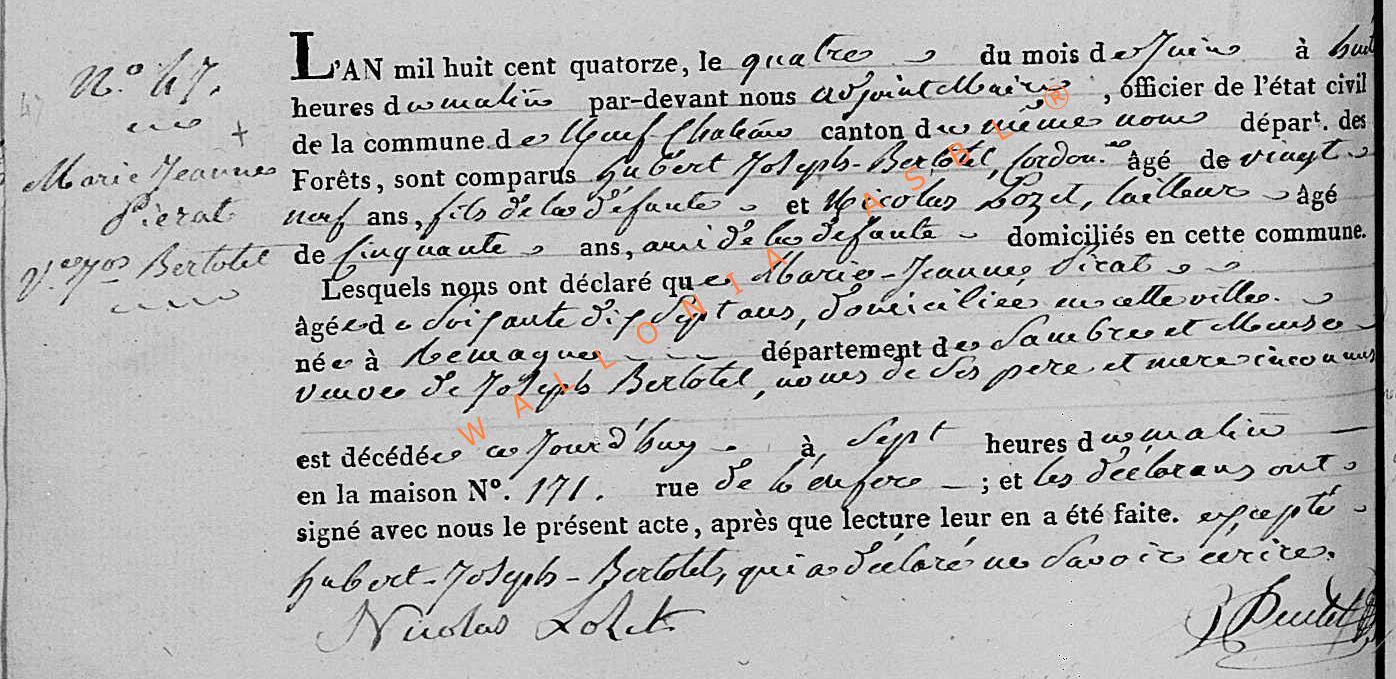 N.o 47.
Marie Jeanne
Pierat
V.e Jos Bertotel
L'AN mil huit cent quatorze, le quatre du mois de Juin à huit
heures du matin par-devant nous adjoint Maire, officier de l'état civil
de la commune de Neufchateau canton du même nom départ. des
Forêts, sont comparus hubert Joseph-Bertotel, Cordon.er âgé de vingt
neuf ans, fils de la défunte et Nicolas Lozet, tailleur âgé
de Cinquante ans, ami de la défunte domiciliés en cette commune.
Lesquels nous ont déclaré que Marie-Jeanne Pirat
âgée de Soixante dix Sept ans, domiciliée en cette ville.
née à Remagne département de Sambre et Meuse
veuve de Joseph Bertotel, noms de Ses pere et mere inconnus
est décédée ce Jourd'huy à Sept heures du matin
en la maison N°. 171. rue de ; et les déclarans ont
signé avec nous le présent acte, après que lecture leur en a été faite. excepté
hubert-Joseph-Bertotel, qui a déclaré ne Savoir écrire.
Nicolas Lozet
WALLONIA ASBL ®